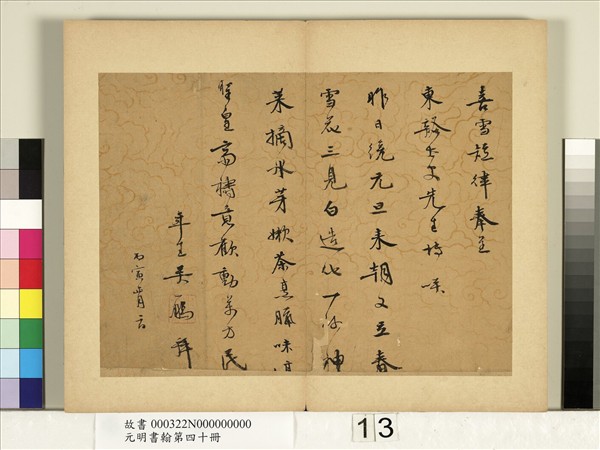 喜雪短律奉呈
東谿老丈先生博笑
昨日纔元旦來朝又立春
雪花三見白造化一何神
菜摘冰芽嫩茶烹臘味
聖皇齋禱竟歡動萬方民
年生吳鵬拜
丙寅肖月言
故書 000322N000000000
元明書翰第四十冊
13